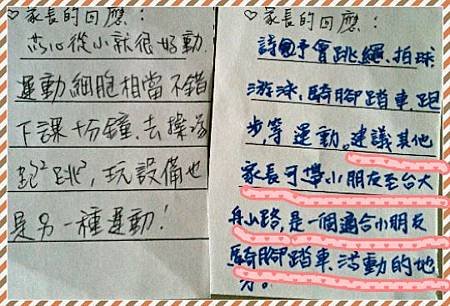 ♡家長的回應:
芯心從小就很好動.
運動細胞相當不錯
下課十分鐘.去操場
跑²跳²,玩設備也
是另一種運動!
♡家長的回應:
詩予會跳繩、拍球
游泳,騎腳踏車跑
步,等運動。建議其他
家長可帶小朋友至台大
舟山路,是一個適合小朋友
騎腳踏車、活動的地
方。